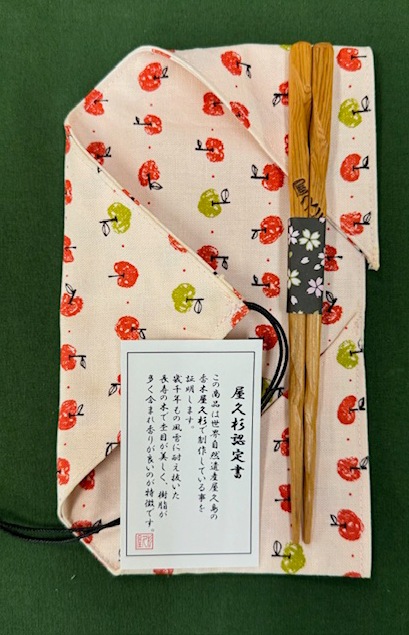 屋久杉認定書
この商品は世界自然遺産屋久島の
杢木屋久杉で制作している事を
証明します。
幾千年もの風雪に耐え抜いた
長寿の木で杢目が美しく、樹脂が
多く含まれ香りが良いのが特徴です。